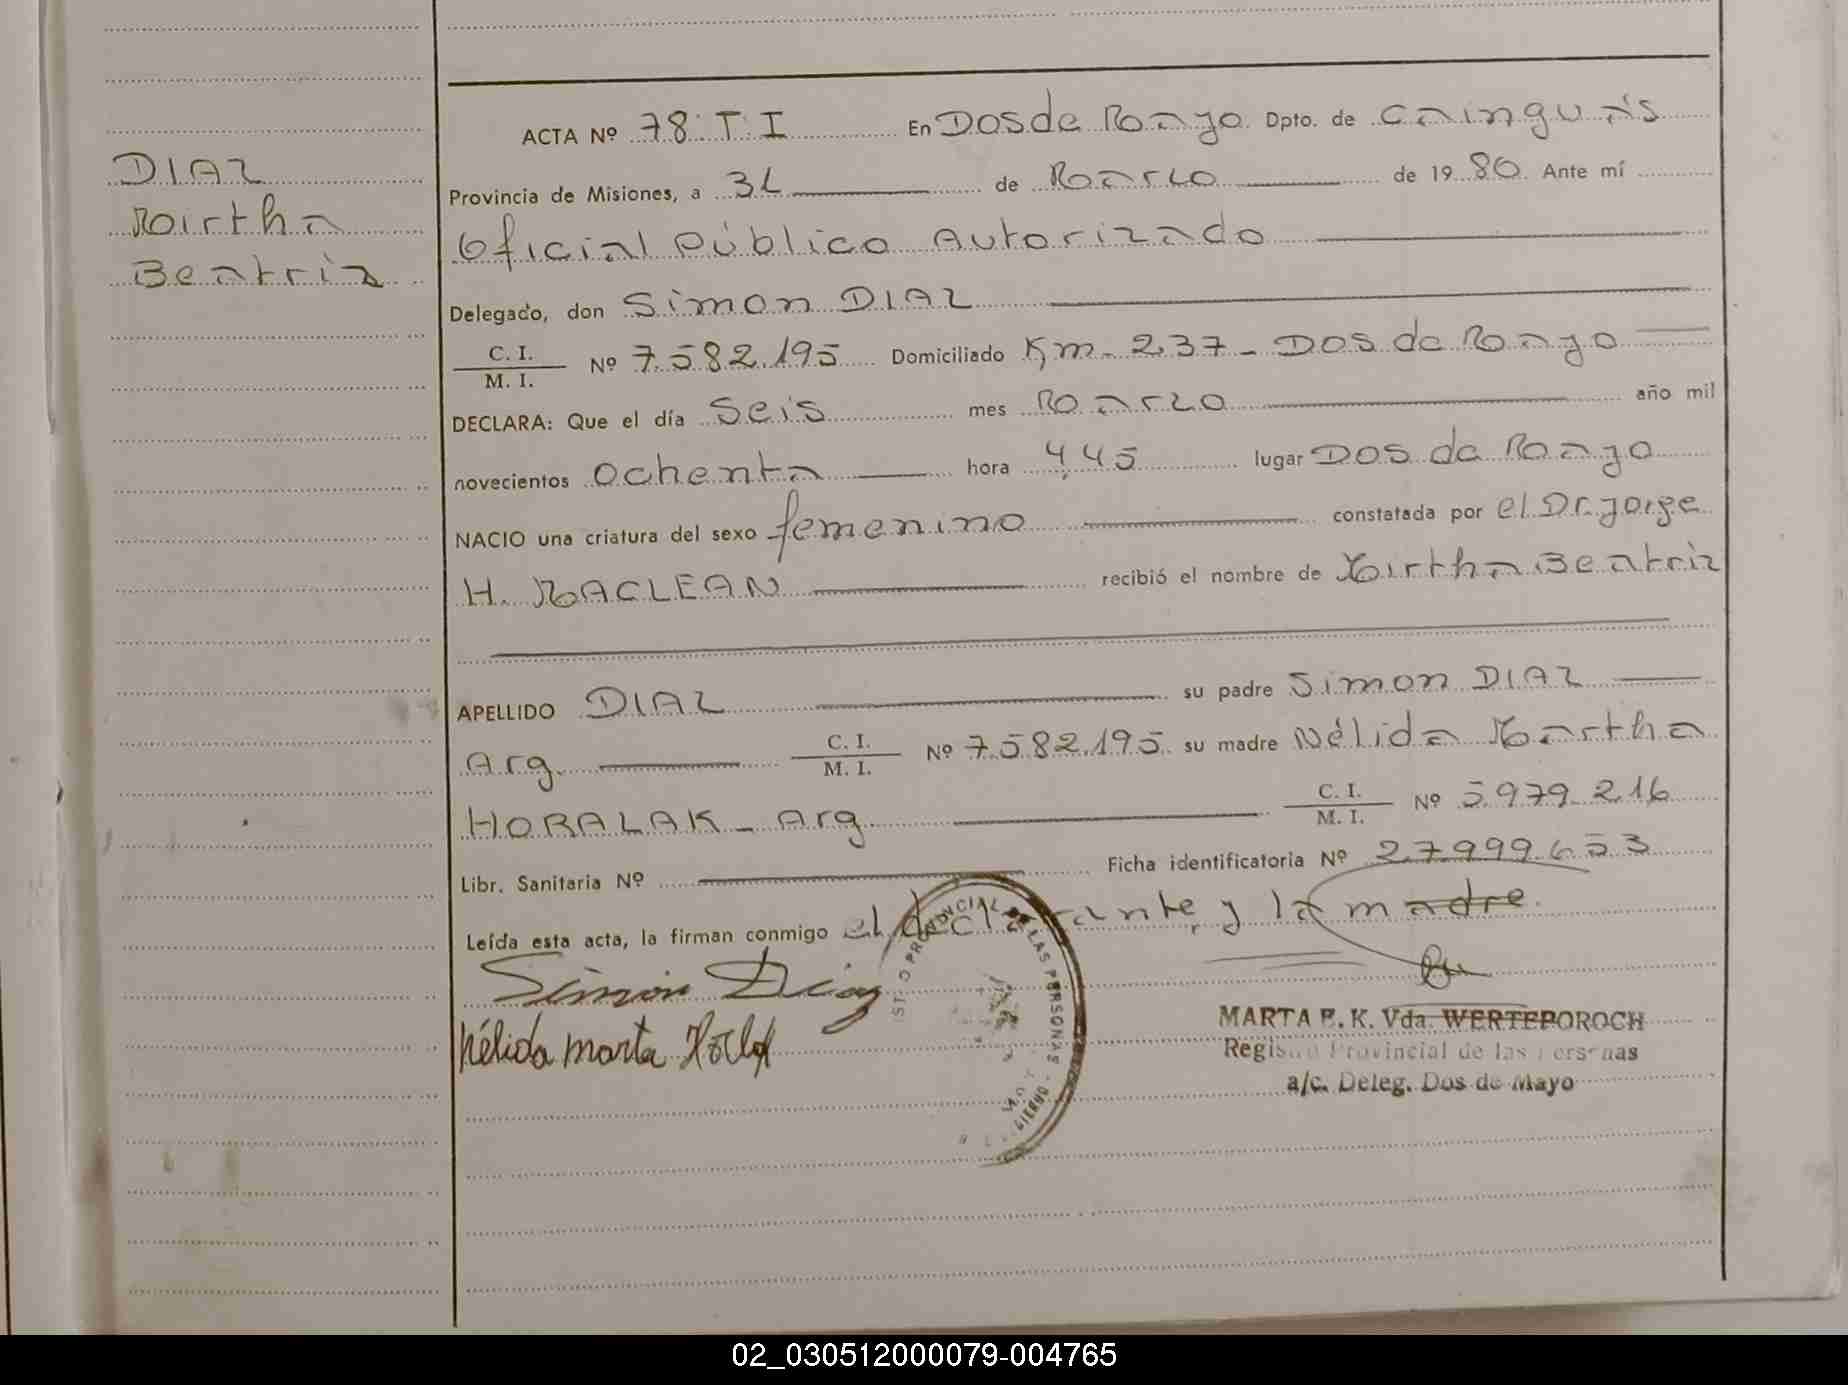 DIAZ
Mirtha
Beatriz
ACTA Nº 78 T I En Dos de Mayo Dpto. de Cainguás
Provincia de Misiones, a 31 de Marzo de 1980. Ante mí
Oficial Público Autorizado
Delegado, don Simon DIAZ
C. I.
M. I.
Nº 7.582.195 Domiciliado Km. 237 - Dos de Mayo
DECLARA: Que el día Seis mes Marzo año mil
novecientos ochenta hora 4,45 lugar Dos de Mayo
NACIO una criatura del sexo femenino constatada por el Dr. Jorge
H. MACLEAN recibió el nombre de Mirtha Beatriz
APELLIDO DIAZ su padre Simon DIAZ
Arg. C. I.
M. I.
Nº 7.582.195 su madre Nélida Martha
HORALAK - Arg. C. I.
M. I.
Nº 5.979.216
Libr. Sanitaria Nº Ficha identificatoria Nº 27.999.653
Leída esta acta, la firman conmigo el declarante, y la madre.
Simón Diaz
Nélida Marta
PROVINCIAL DE LAS PERSONAS
MARTA E. K. Vda. WERTEPOROCH
Registro Provincial de las Personas
a/c. Deleg. Dos de Mayo
02_030512000079-004765